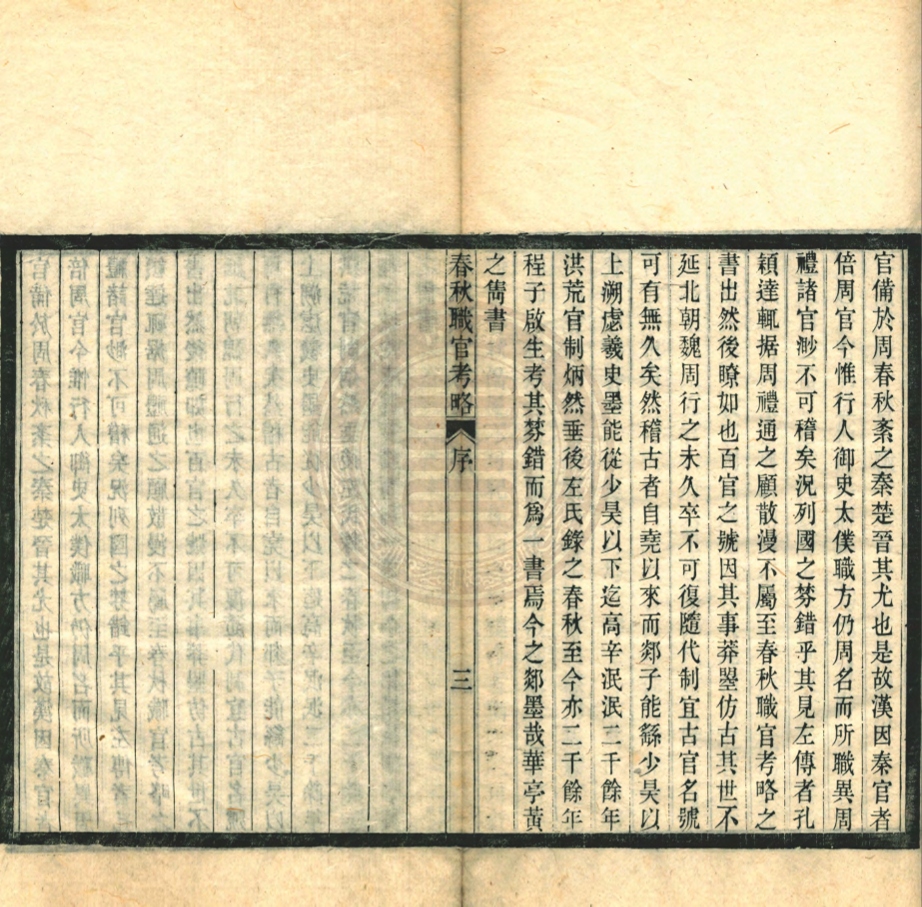 官備於周春秋紊之秦楚晉其尤也是故漢因秦官者
倍周官今惟行人御史太僕職方仍周名而所職異周
禮諸官渺不可稽矣況列國之棼錯乎其見左傳者孔
穎達輒据周禮通之顧散漫不屬至春秋職官考略之
書出然後瞭如也百官之號因其事莽曌仿古其世不
延北朝魏周行之未久卒不可復隨代制宜古官名號
可有無久矣然稽古者自堯以來而郯子能繇少昊以
上溯虙羲史墨能從少昊以下迄高辛泯泯二千餘年
洪荒官制炳然垂後左氏錄之春秋至今亦二千餘年
程子啟生考其棼錯而爲一書焉今之郯墨哉華亭黃
之雋書
春秋職官考略 序 三